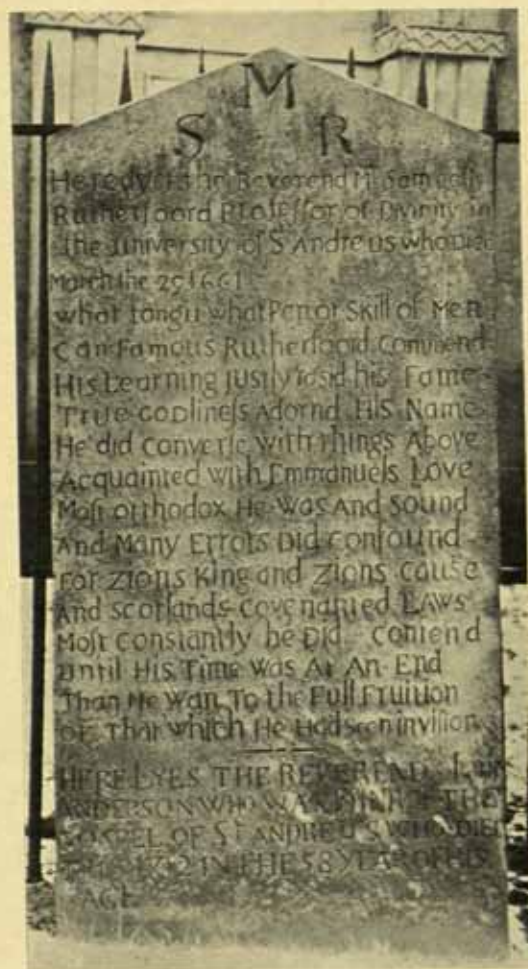 M
S R
Here Lyes the Reverend Mr Samuell
Rutherfoord Professor of Divinity in
the University of St Andreus who Died
March the 1661
what tongu what Pen or Skill of Men
Can Famous Rutherfoord Commend
His Learning justly raisd his Fame
True GODliness Adornd His Name
He did converse with things Above
Acquainted with Emmanuels Love
Most orthodox He Was And Sound
And Many Errors Did confound
For Zions King and Zions cause
And scotlands covenanted LAWS
Most constantly he Did contend
until His Time Was At An End
Than He Wan To the Full Fruition
OF That which He Had seen in vision
HERE LYES THE REVEREND
ANDERSON WHO WAS OF THE
GOSPEL OF ST ANDREUS WHO DIED
IN THE 58 YEAR OF HIS
AGE